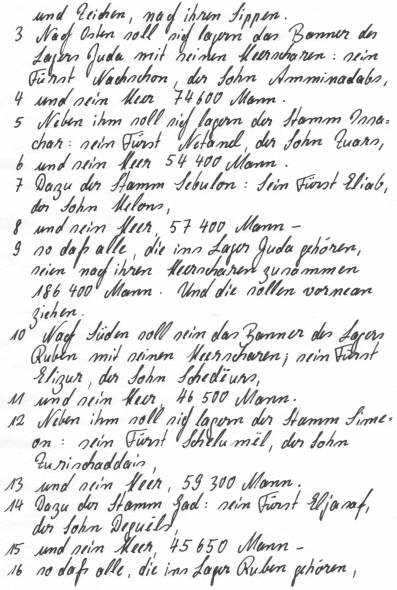 und Zeichen, nach ihren Sippen.
3 Nach Osten soll sich lagern das Banner des
Lagers Juda mit seinen Heerscharen: sein
Fürst Nachschon, der Sohn Amminadabs,
4 und sein Heer 74 600 Mann.
5 Neben ihm soll sich lagern der Stamm Issa=
char: sein Fürst Netanel, der Sohn Zuars,
6 und sein Heer 54 400 Mann.
7 Dazu der Stamm Sebulon: Sein Fürst Eliab,
der Sohn Helons,
8 und sein Heer, 57 400 Mann –
9 so daß alle, die ins Lager Juda gehören,
seien nach ihren Heerscharen zusammen
186 400 Mann. Und die sollen vornean
ziehen.
10 Nach Süden soll sein das Banner des Lagers
Ruben mit seinen Heerscharen; sein Fürst
Elizur, der Sohn Schedëurs,
11 und sein Heer, 46 500 Mann.
12 Neben ihm soll sich lagern der Stamm Sime=
on: sein Fürst Schelumiël, der Sohn
Zurischaddais,
13 und sein Heer, 59 300 Mann.
14 Dazu der Stamm Gad: sein Fürst Eljasaf,
der Sohn Deguëls,
15 und sein Heer, 45 650 Mann –
16 so daß alle, die ins Lager Ruben gehören,